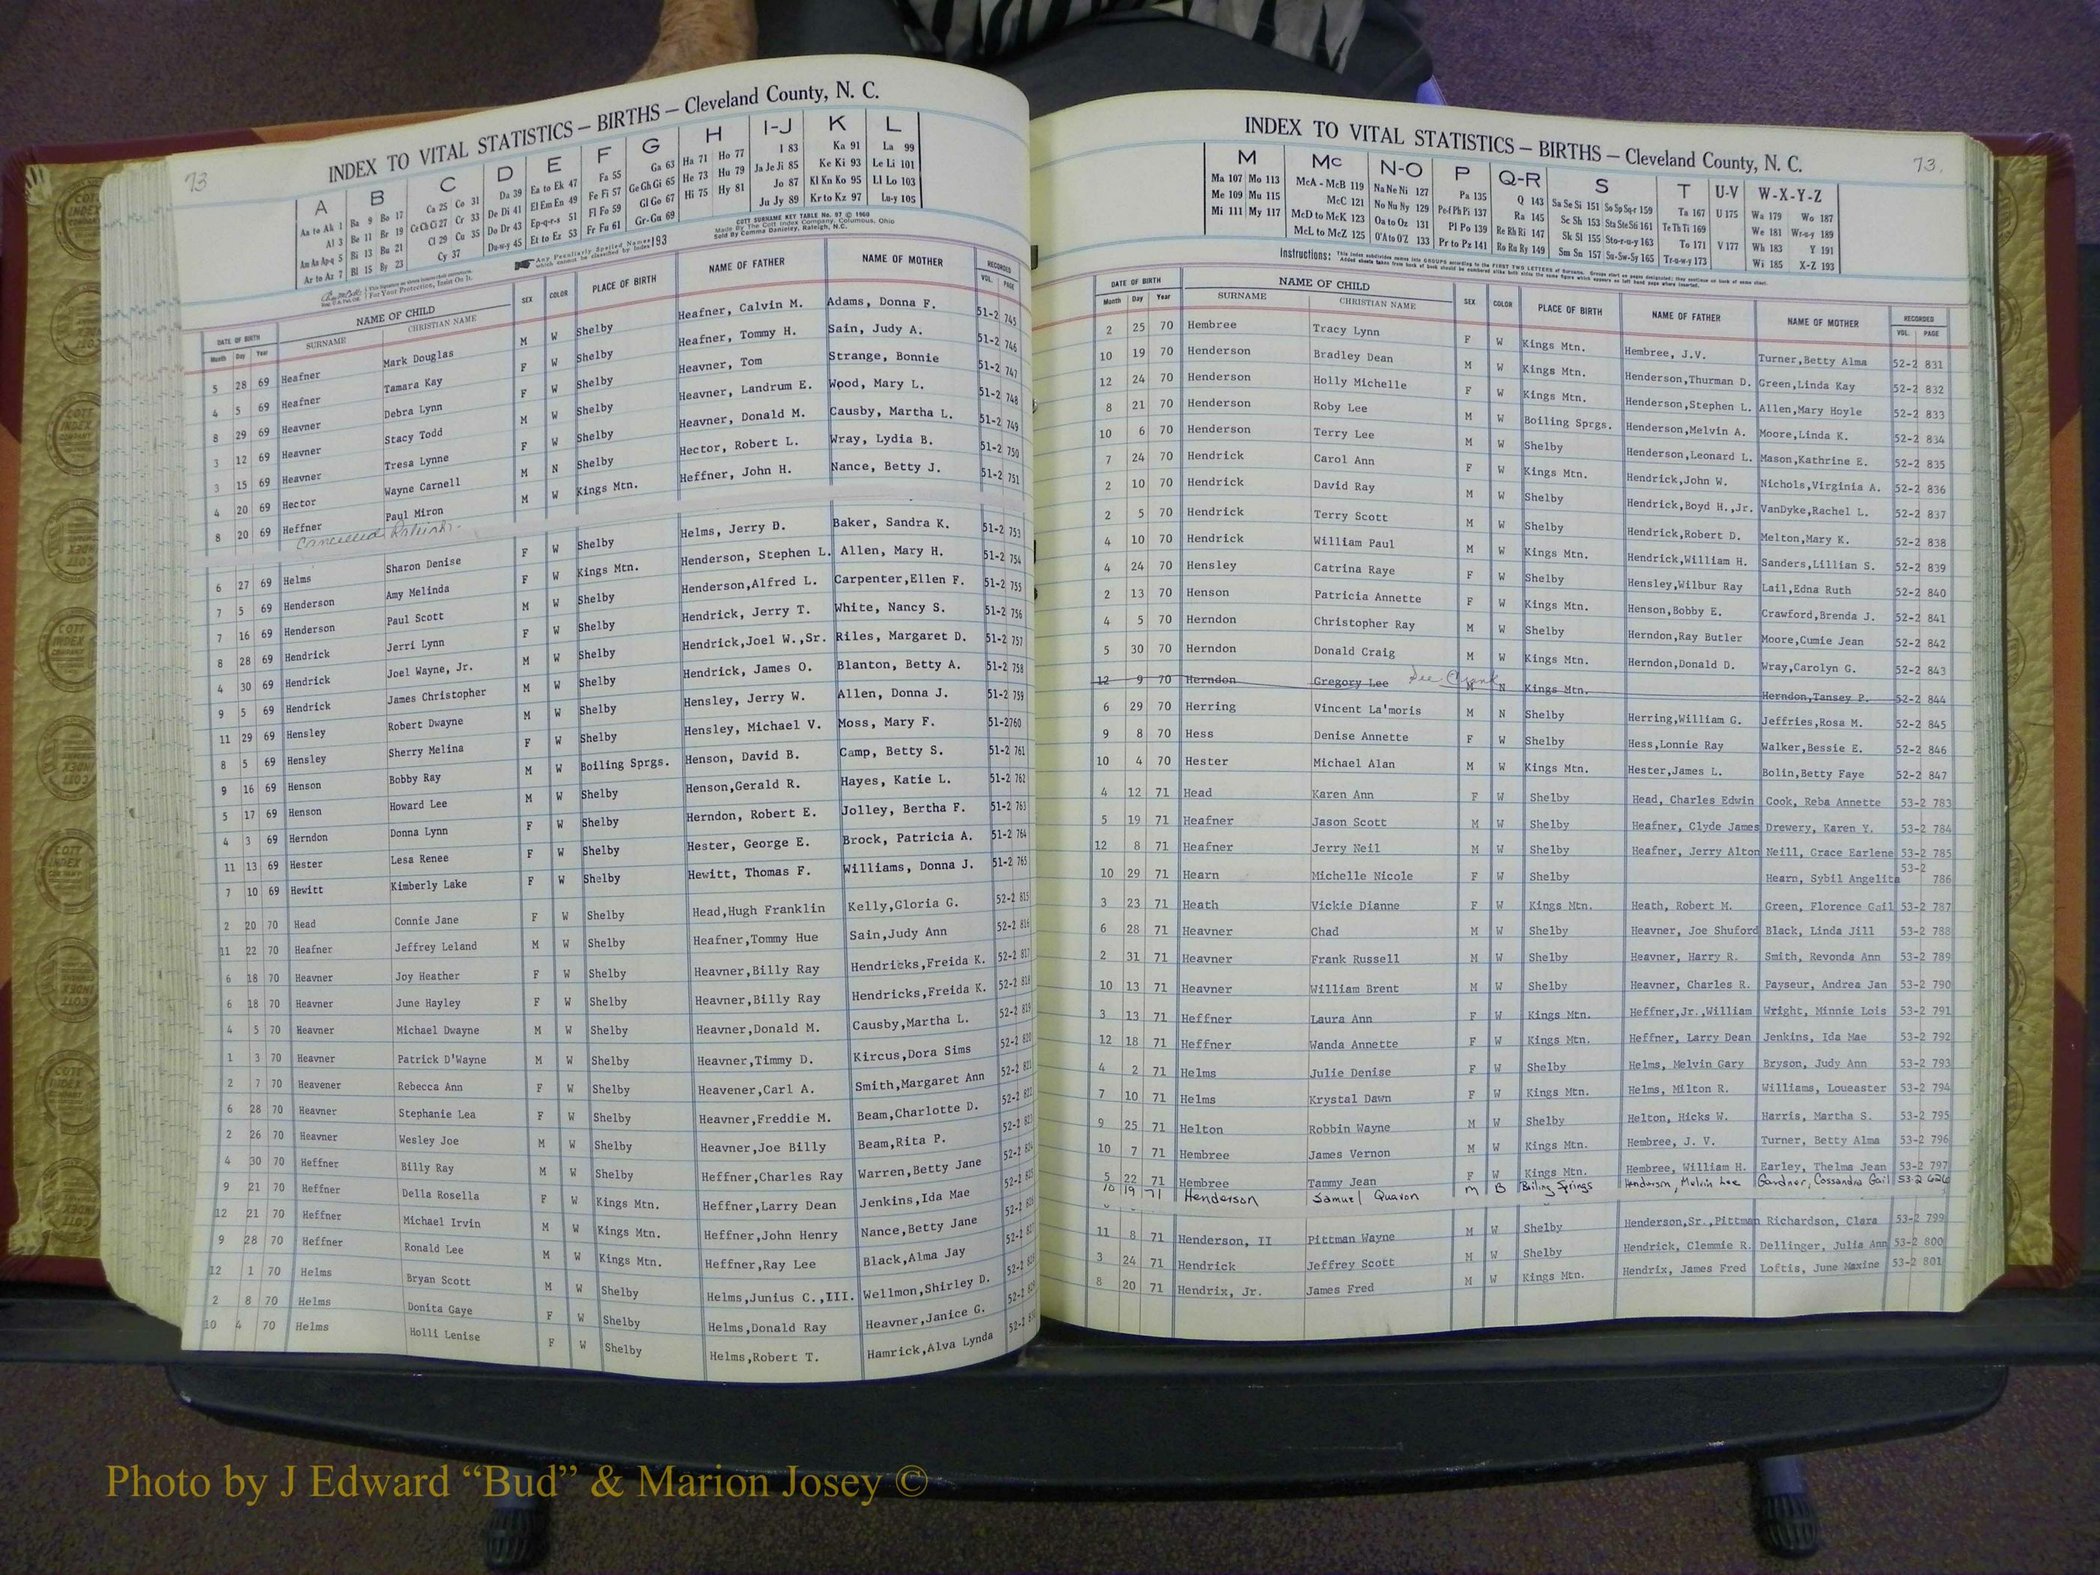 73
INDEX TO VITAL STATISTICS — BIRTHS — Cleveland County, N. C.
A B C D E F G H I-J K L
Aa to Ak 1 Ba 9 Bo 17 Ca 25 Co 31 Da 39 Ea to Ek 47 Fa 55 Ga 63 Ha 71 Ho 77 I 83 Ka 91 La 99
Al 3 Be 11 Br 19 Ce Ch Ci 27 Cr 33 De Di 41 El Em En 49 Fe Fi 57 Ge Gh Gi 65 He 73 Hu 79 Ja Je Ji 85 Ke Ki 93 Le Li 101
Am An Ap-q 5 Bi 13 Bu 21 Cl 29 Cu 35 Do Dr 43 Ep-q-r-s 51 Fl Fo 59 Gl Go 67 Hi 75 Hy 81 Jo 87 Kl Kn Ko 95 Ll Lo 103
Ar to Az 7 Bl 15 By 23 Cy 37 Du-w-y 45 Et to Ez 53 Fr Fu 61 Gr-Gu 69 Ju Jy 89 Kr to Kz 97 Lu-y 105
COTT SURNAME KEY TABLE No. 97 © 1960
Made By The Cott Index Company, Columbus, Ohio
Sold By Comma Danieley, Raleigh, N.C.
Any Peculiarly Spelled Names which cannot be classified by Index 193
For Your Protection, Insist On It.
DATE OF BIRTH NAME OF CHILD SEX COLOR PLACE OF BIRTH NAME OF FATHER NAME OF MOTHER RECORDED
Month Day Year SURNAME CHRISTIAN NAME VOL. PAGE
5 28 69 Heafner Mark Douglas M W Shelby Heafner, Calvin M. Adams, Donna F. 51-2 745
4 5 69 Heafner Tamara Kay F W Shelby Heafner, Tommy H. Sain, Judy A. 51-2 746
8 29 69 Heavner Debra Lynn F W Shelby Heavner, Tom Strange, Bonnie 51-2 747
3 12 69 Heavner Stacy Todd M W Shelby Heavner, Landrum E. Wood, Mary L. 51-2 748
3 15 69 Heavner Tresa Lynne F W Shelby Heavner, Donald M. Causby, Martha L. 51-2 749
4 20 69 Hector Wayne Carnell M N Shelby Hector, Robert L. Wray, Lydia B. 51-2 750
8 20 69 Heffner Paul Miron M W Kings Mtn. Heffner, John H. Nance, Betty J. 51-2 751
Cancelled
6 27 69 Helms Sharon Denise F W Shelby Helms, Jerry D. Baker, Sandra K. 51-2 753
7 5 69 Henderson Amy Melinda F W Kings Mtn. Henderson, Stephen L. Allen, Mary H. 51-2 754
7 16 69 Henderson Paul Scott M W Shelby Henderson,Alfred L. Carpenter,Ellen F. 51-2 755
8 28 69 Hendrick Jerri Lynn F W Shelby Hendrick, Jerry T. White, Nancy S. 51-2 756
4 30 69 Hendrick Joel Wayne, Jr. M W Shelby Hendrick,Joel W.,Sr. Riles, Margaret D. 51-2 757
9 5 69 Hendrick James Christopher M W Shelby Hendrick, James O. Blanton, Betty A. 51-2 758
11 29 69 Hensley Robert Dwayne M W Shelby Hensley, Jerry W. Allen, Donna J. 51-2 759
8 5 69 Hensley Sherry Melina F W Shelby Hensley, Michael V. Moss, Mary F. 51-2760
9 16 69 Henson Bobby Ray M W Boiling Sprgs. Henson, David B. Camp, Betty S. 51-2 761
5 17 69 Henson Howard Lee M W Shelby Henson,Gerald R. Hayes, Katie L. 51-2 762
4 3 69 Herndon Donna Lynn F W Shelby Herndon, Robert E. Jolley, Bertha F. 51-2 763
11 13 69 Hester Lesa Renee F W Shelby Hester, George E. Brock, Patricia A. 51-2 764
7 10 69 Hewitt Kimberly Lake F W Shelby Hewitt, Thomas F. Williams, Donna J. 51-2 765
2 20 70 Head Connie Jane F W Shelby Head,Hugh Franklin Kelly,Gloria G. 52-2 815
11 22 70 Heafner Jeffrey Leland M W Shelby Heafner,Tommy Hue Sain,Judy Ann 52-2 816
6 18 70 Heavner Joy Heather F W Shelby Heavner,Billy Ray Hendricks,Freida K. 52-2 817
6 18 70 Heavner June Hayley F W Shelby Heavner,Billy Ray Hendricks,Freida K. 52-2 818
4 5 70 Heavner Michael Dwayne M W Shelby Heavner,Donald M. Causby,Martha L. 52-2 819
1 3 70 Heavner Patrick D'Wayne M W Shelby Heavner,Timmy D. Kircus,Dora Sims 52-2 820
2 7 70 Heavener Rebecca Ann F W Shelby Heavener,Carl A. Smith,Margaret Ann 52-2 821
6 28 70 Heavner Stephanie Lea F W Shelby Heavner,Freddie M. Beam,Charlotte D. 52-2 822
2 26 70 Heavner Wesley Joe M W Shelby Heavner,Joe Billy Beam,Rita P. 52-2 823
4 30 70 Heffner Billy Ray M W Shelby Heffner,Charles Ray Warren,Betty Jane 52-2 824
9 21 70 Heffner Della Rosella F W Kings Mtn. Heffner,Larry Dean Jenkins,Ida Mae 52-2 825
12 21 70 Heffner Michael Irvin M W Kings Mtn. Heffner,John Henry Nance,Betty Jane 52-2 826
9 28 70 Heffner Ronald Lee M W Kings Mtn. Heffner,Ray Lee Black,Alma Jay 52-2 827
12 1 70 Helms Bryan Scott M W Shelby Helms,Junius C.,III. Wellmon,Shirley D. 52-2 828
2 8 70 Helms Donita Gaye F W Shelby Helms,Donald Ray Heavner,Janice G. 52-2 829
10 4 70 Helms Holli Lenise F W Shelby Helms,Robert T. Hamrick,Alva Lynda 52-2 830
INDEX TO VITAL STATISTICS — BIRTHS — Cleveland County, N. C. 73.
M Mc N-O P Q-R S T U-V W-X-Y-Z
Ma 107 Mo 113 McA - McB 119 Na Ne Ni 127 Pa 135 Q 143 Sa Se Si 151 So Sp Sq-r 159 Ta 167 U 175 Wa 179 Wo 187
Me 109 Mu 115 McC 121 No Nu Ny 129 Pe-f Ph Pi 137 Ra 145 Sc Sh 153 Sta Ste Sti 161 Te Th Ti 169 We 181 Wr-u-y 189
Mi 111 My 117 McD to McK 123 Oa to Oz 131 Pl Po 139 Re Rh Ri 147 Sk Sl 155 Sto-r-u-y 163 To 171 V 177 Wh 183 Y 191
McL to McZ 125 O'A to O'Z 133 Pr to Pz 141 Ro Ru Ry 149 Sm Sn 157 Su-Sw-Sy 165 Tr-u-w-y 173 Wi 185 X-Z 193
Instructions: This index subdivides names into GROUPS according to the FIRST TWO LETTERS of Surname.
DATE OF BIRTH NAME OF CHILD SEX COLOR PLACE OF BIRTH NAME OF FATHER NAME OF MOTHER RECORDED
Month Day Year SURNAME CHRISTIAN NAME VOL. PAGE
2 25 70 Hembree Tracy Lynn F W Kings Mtn. Hembree, J.V. Turner,Betty Alma 52-2 831
10 19 70 Henderson Bradley Dean M W Kings Mtn. Henderson,Thurman D. Green,Linda Kay 52-2 832
12 24 70 Henderson Holly Michelle F W Kings Mtn. Henderson,Stephen L. Allen,Mary Hoyle 52-2 833
8 21 70 Henderson Roby Lee M W Boiling Sprgs. Henderson,Melvin A. Moore,Linda K. 52-2 834
10 6 70 Henderson Terry Lee M W Shelby Henderson,Leonard L. Mason,Kathrine E. 52-2 835
7 24 70 Hendrick Carol Ann F W Kings Mtn. Hendrick,John W. Nichols,Virginia A. 52-2 836
2 10 70 Hendrick David Ray M W Shelby Hendrick,Boyd H.,Jr. VanDyke,Rachel L. 52-2 837
2 5 70 Hendrick Terry Scott M W Shelby Hendrick,Robert D. Melton,Mary K. 52-2 838
4 10 70 Hendrick William Paul M W Kings Mtn. Hendrick,William H. Sanders,Lillian S. 52-2 839
4 24 70 Hensley Catrina Raye F W Shelby Hensley,Wilbur Ray Lail,Edna Ruth 52-2 840
2 13 70 Henson Patricia Annette F W Kings Mtn. Henson,Bobby E. Crawford,Brenda J. 52-2 841
4 5 70 Herndon Christopher Ray M W Shelby Herndon,Ray Butler Moore,Cumie Jean 52-2 842
5 30 70 Herndon Donald Craig M W Kings Mtn. Herndon,Donald D. Wray,Carolyn G. 52-2 843
12 9 70 Herndon Gregory Lee See M N Kings Mtn. Herndon,Tansey P. 52-2 844
6 29 70 Herring Vincent La'moris M N Shelby Herring,William G. Jeffries,Rosa M. 52-2 845
9 8 70 Hess Denise Annette F W Shelby Hess,Lonnie Ray Walker,Bessie E. 52-2 846
10 4 70 Hester Michael Alan M W Kings Mtn. Hester,James L. Bolin,Betty Faye 52-2 847
4 12 71 Head Karen Ann F W Shelby Head, Charles Edwin Cook, Reba Annette 53-2 783
5 19 71 Heafner Jason Scott M W Shelby Heafner, Clyde James Drewery, Karen Y. 53-2 784
12 8 71 Heafner Jerry Neil M W Shelby Heafner, Jerry Alton Neill, Grace Earlene 53-2 785
10 29 71 Hearn Michelle Nicole F W Shelby Hearn, Sybil Angelita 53-2 786
3 23 71 Heath Vickie Dianne F W Kings Mtn. Heath, Robert M. Green, Florence Gail 53-2 787
6 28 71 Heavner Chad M W Shelby Heavner, Joe Shuford Black, Linda Jill 53-2 788
2 31 71 Heavner Frank Russell M W Shelby Heavner, Harry R. Smith, Revonda Ann 53-2 789
10 13 71 Heavner William Brent M W Shelby Heavner, Charles R. Payseur, Andrea Jan 53-2 790
3 13 71 Heffner Laura Ann F W Kings Mtn. Heffner,Jr.,William Wright, Minnie Lois 53-2 791
12 18 71 Heffner Wanda Annette F W Kings Mtn. Heffner, Larry Dean Jenkins, Ida Mae 53-2 792
4 2 71 Helms Julie Denise F W Shelby Helms, Melvin Gary Bryson, Judy Ann 53-2 793
7 10 71 Helms Krystal Dawn F W Kings Mtn. Helms, Milton R. Williams, Loueaster 53-2 794
9 25 71 Helton Robbin Wayne M W Shelby Helton, Hicks W. Harris, Martha S. 53-2 795
10 7 71 Hembree James Vernon M W Kings Mtn. Hembree, J. V. Turner, Betty Alma 53-2 796
5 22 71 Hembree Tammy Jean F W Kings Mtn. Hembree, William H. Earley, Thelma Jean 53-2 797
10 19 71 Henderson Samuel Quavon M B Boiling Springs Henderson, Melvin Lee Gardner, Cassandra Gail 53-2 626
11 8 71 Henderson, II Pittman Wayne M W Shelby Henderson,Sr.,Pittman Richardson, Clara 53-2 799
3 24 71 Hendrick Jeffrey Scott M W Shelby Hendrick, Clemmie R. Dellinger, Julia Ann 53-2 800
8 20 71 Hendrix, Jr. James Fred M W Kings Mtn. Hendrix, James Fred Loftis, June Maxine 53-2 801
Photo by J Edward “Bud” & Marion Josey ©